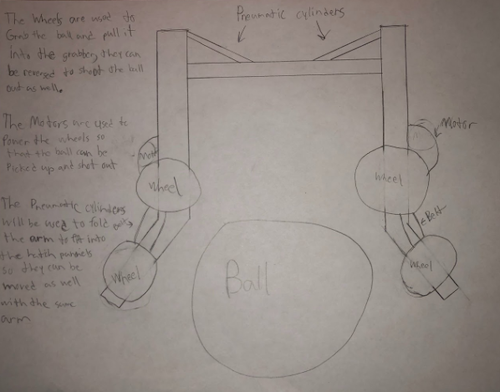 The Wheels are used to
Grab the ball and pull it
Into the grabber, they can
be reversed to shoot the ball
out as well.
The Motors are used to
Power the wheels so
that the ball can be
Picked up and shot out
The Pneumatic cylinders
Will be used to fold
the arm to fit into
the hatch pannels
so they can be
moved as well
with the same
arm
Pneumatic cylinders
Motor
Wheel
Wheel
Belt
Wheel
Wheel
Ball